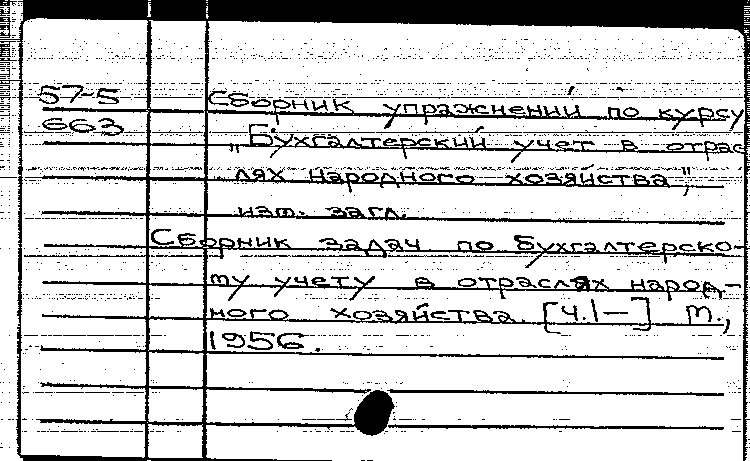 57-5
663
Сборник упражнений по курсу
„Бухгалтерский учет в отрас
лях народного хозяйства",
загл.
Сборник задач по бухгалтерско-
му учету в отраслях народ-
ного хозяйства. [Ч.I—] М.,
1956.